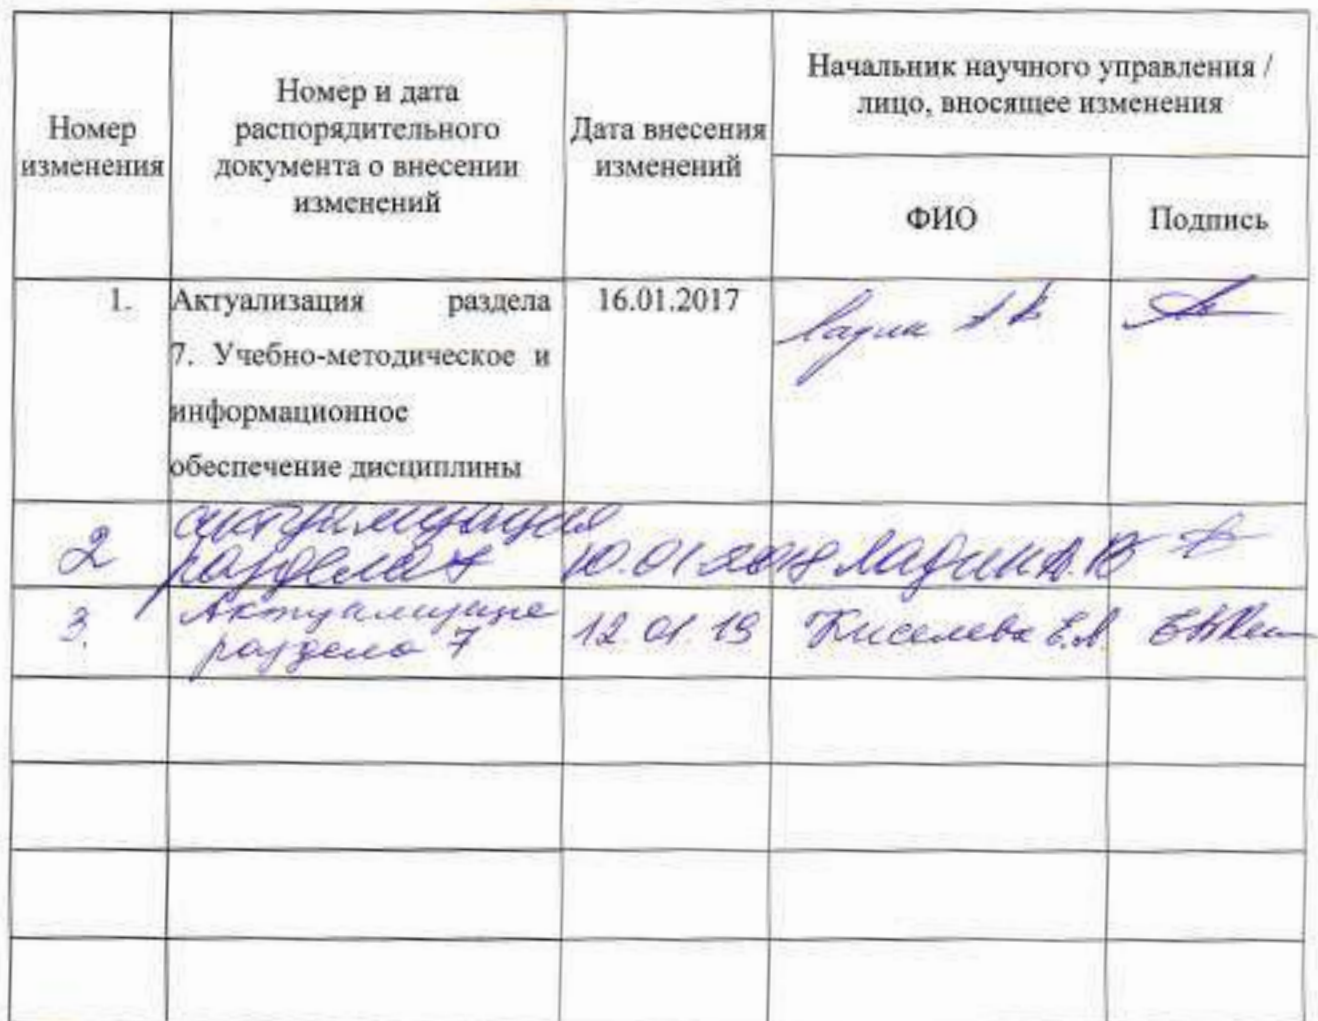 Номер
изменения
Номер и дата
распорядительного
документа о внесении
изменений
Дата внесения
изменений
Начальник научного управления /
лицо, вносящее изменения
ФИО
Подпись
1.
Актуализация раздела
7. Учебно-методическое и
информационное
обеспечение дисциплины
16.01.2017
Ладин А В
2
актуализация
раздела 7
10.01.2018
Ладин А.В
3.
Актуализация
раздела 7
12.01.19
Киселева Е.А.